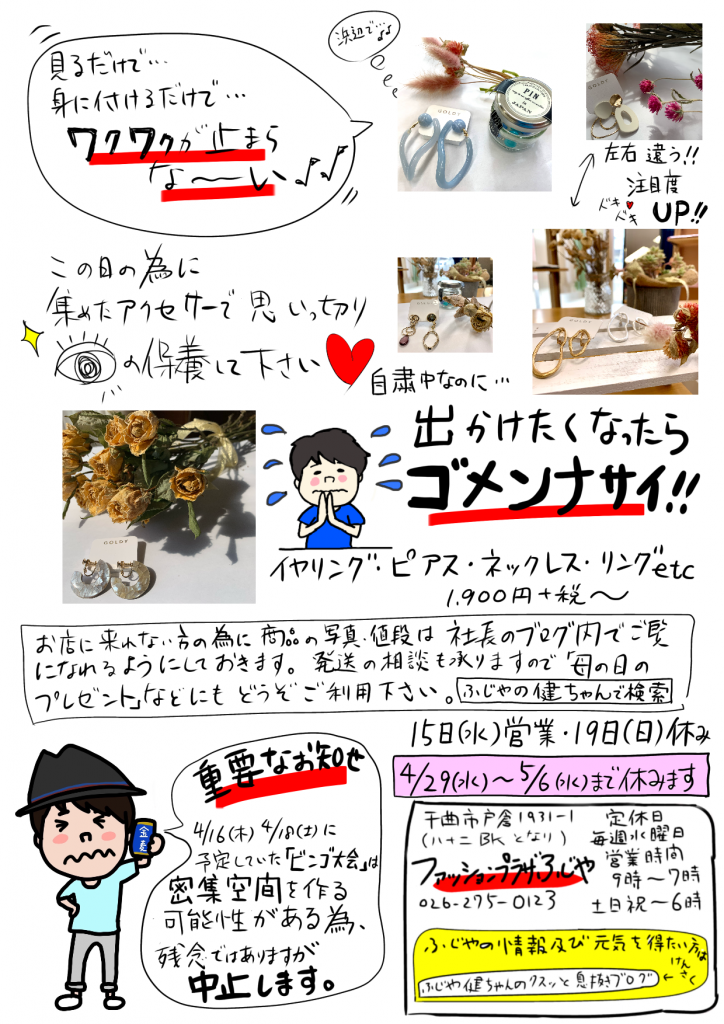 見るだけで…
身に付けるだけで…
ワクワクが止まら
な〜〜い♪♪
浜辺で…♪♪
GOLDY
PIN
in
JAPAN
GOLDY
左右違う!!
注目度
ドキ♥
ドキ UP!!
この日の為に
集めたアクセサーで思いっ切り
の保養して下さい
自粛中なのに…
出かけたくなったら
ゴメンナサイ!!
GOLDY
イヤリング・ピアス・ネックレス・リングetc
1.900円+税〜
お店に来れない方の為に商品の写真・値段は社長のブログ内でご覧
になれるようにしておきます。発送の相談も承りますので「母の日の
プレゼント」などにもどうぞご利用下さい。ふじやの健ちゃんで検索
15日(水)営業・19日(日)休み
4/29(水)〜5/6(水)まで休みます
重要なお知せ
4/16(木) 4/18(土)に
予定していた「ビンゴ大会」は
密集空間を作る
可能性がある為、
残念ではありますが
中止します。
金麦
千曲市戸倉1931-1
(八十二BKとなり)
ファッションプラザふじや
026-275-0123
定休日
毎週水曜日
営業時間
9時〜7時
土日祝〜6時
ふじやの情報及び元気を得たい方は
ふじや健ちゃんのクスッと息抜きブログ
←けんさく